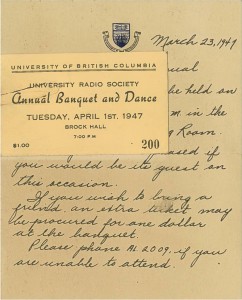 March 23, 1947
UNIVERSITY OF BRITISH COLUMBIA
UNIVERSITY RADIO SOCIETY
Annual Banquet and Dance
TUESDAY, APRIL 1ST, 1947
BROCK HALL
7:00 P.M
$1.00
200
nual
be held on
m. in the
g Room.
ased if
you would be its guest on
this occasion.
If you wish to bring a
friend, an extra ticket may
be procured for one dollar
at the banquet.
Please phone AL 2009 if you
are unable to attend.